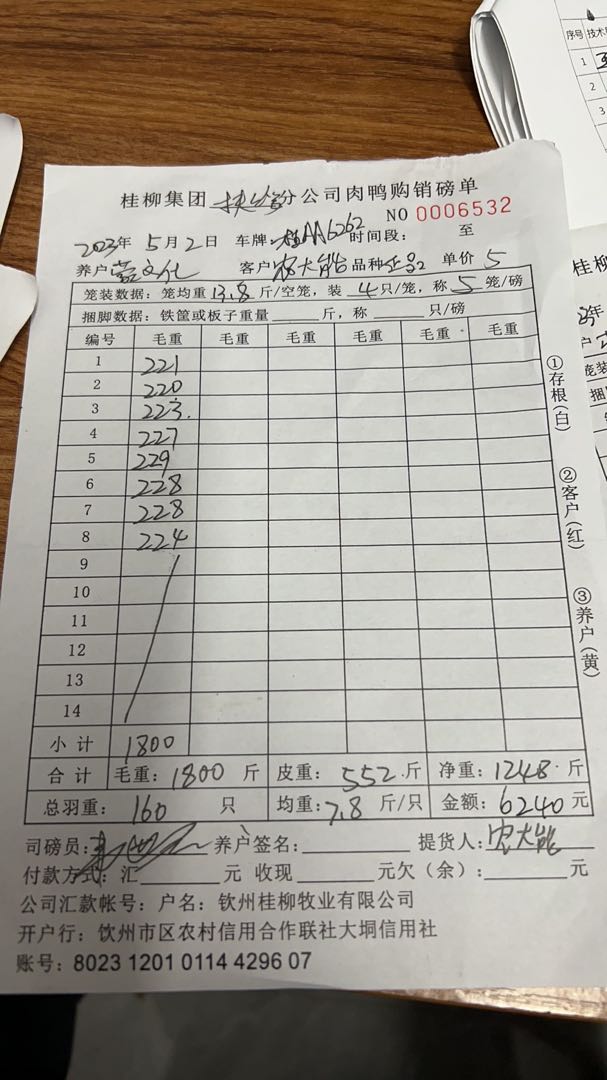 桂柳集团 分公司肉鸭购销磅单
NO 0006532
2023年 5月2日 车牌:桂AA6262 时间段: 至
养户 客户农大能 品种 2 单价 5
笼装数据: 笼均重 13.8 斤/空笼, 装 4 只/笼, 称 5 笼/磅
捆脚数据: 铁筐或板子重量 斤, 称 只/磅
编号 毛重 毛重 毛重 毛重 毛重 毛重
1 221
2 220
3 223.
4 227
5 229
6 228
7 228
8 224
9
10
11
12
13
14
小计 1800
合计 毛重: 1800 斤 皮重: 552 斤 净重: 1248 斤
总羽重: 160 只 均重: 7.8 斤/只 金额: 6240 元
司磅员: 养户签名: 提货人: 农大能
付款方式: 汇 元 收现 元欠(余): 元
公司汇款帐号: 户名: 钦州桂柳牧业有限公司
开户行: 钦州市区农村信用合作联社大垌信用社
账号: 8023 1201 0114 4296 07
①存根(白)
②客户(红)
③养户(黄)
序号 技术
1
2
3
桂柳